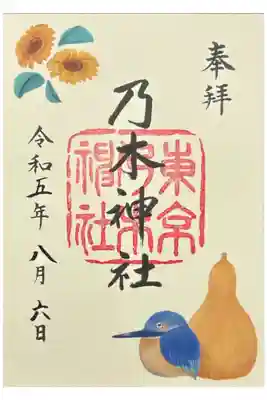 奉拝
乃木神社
東京
神社
令和五年 八月 六日